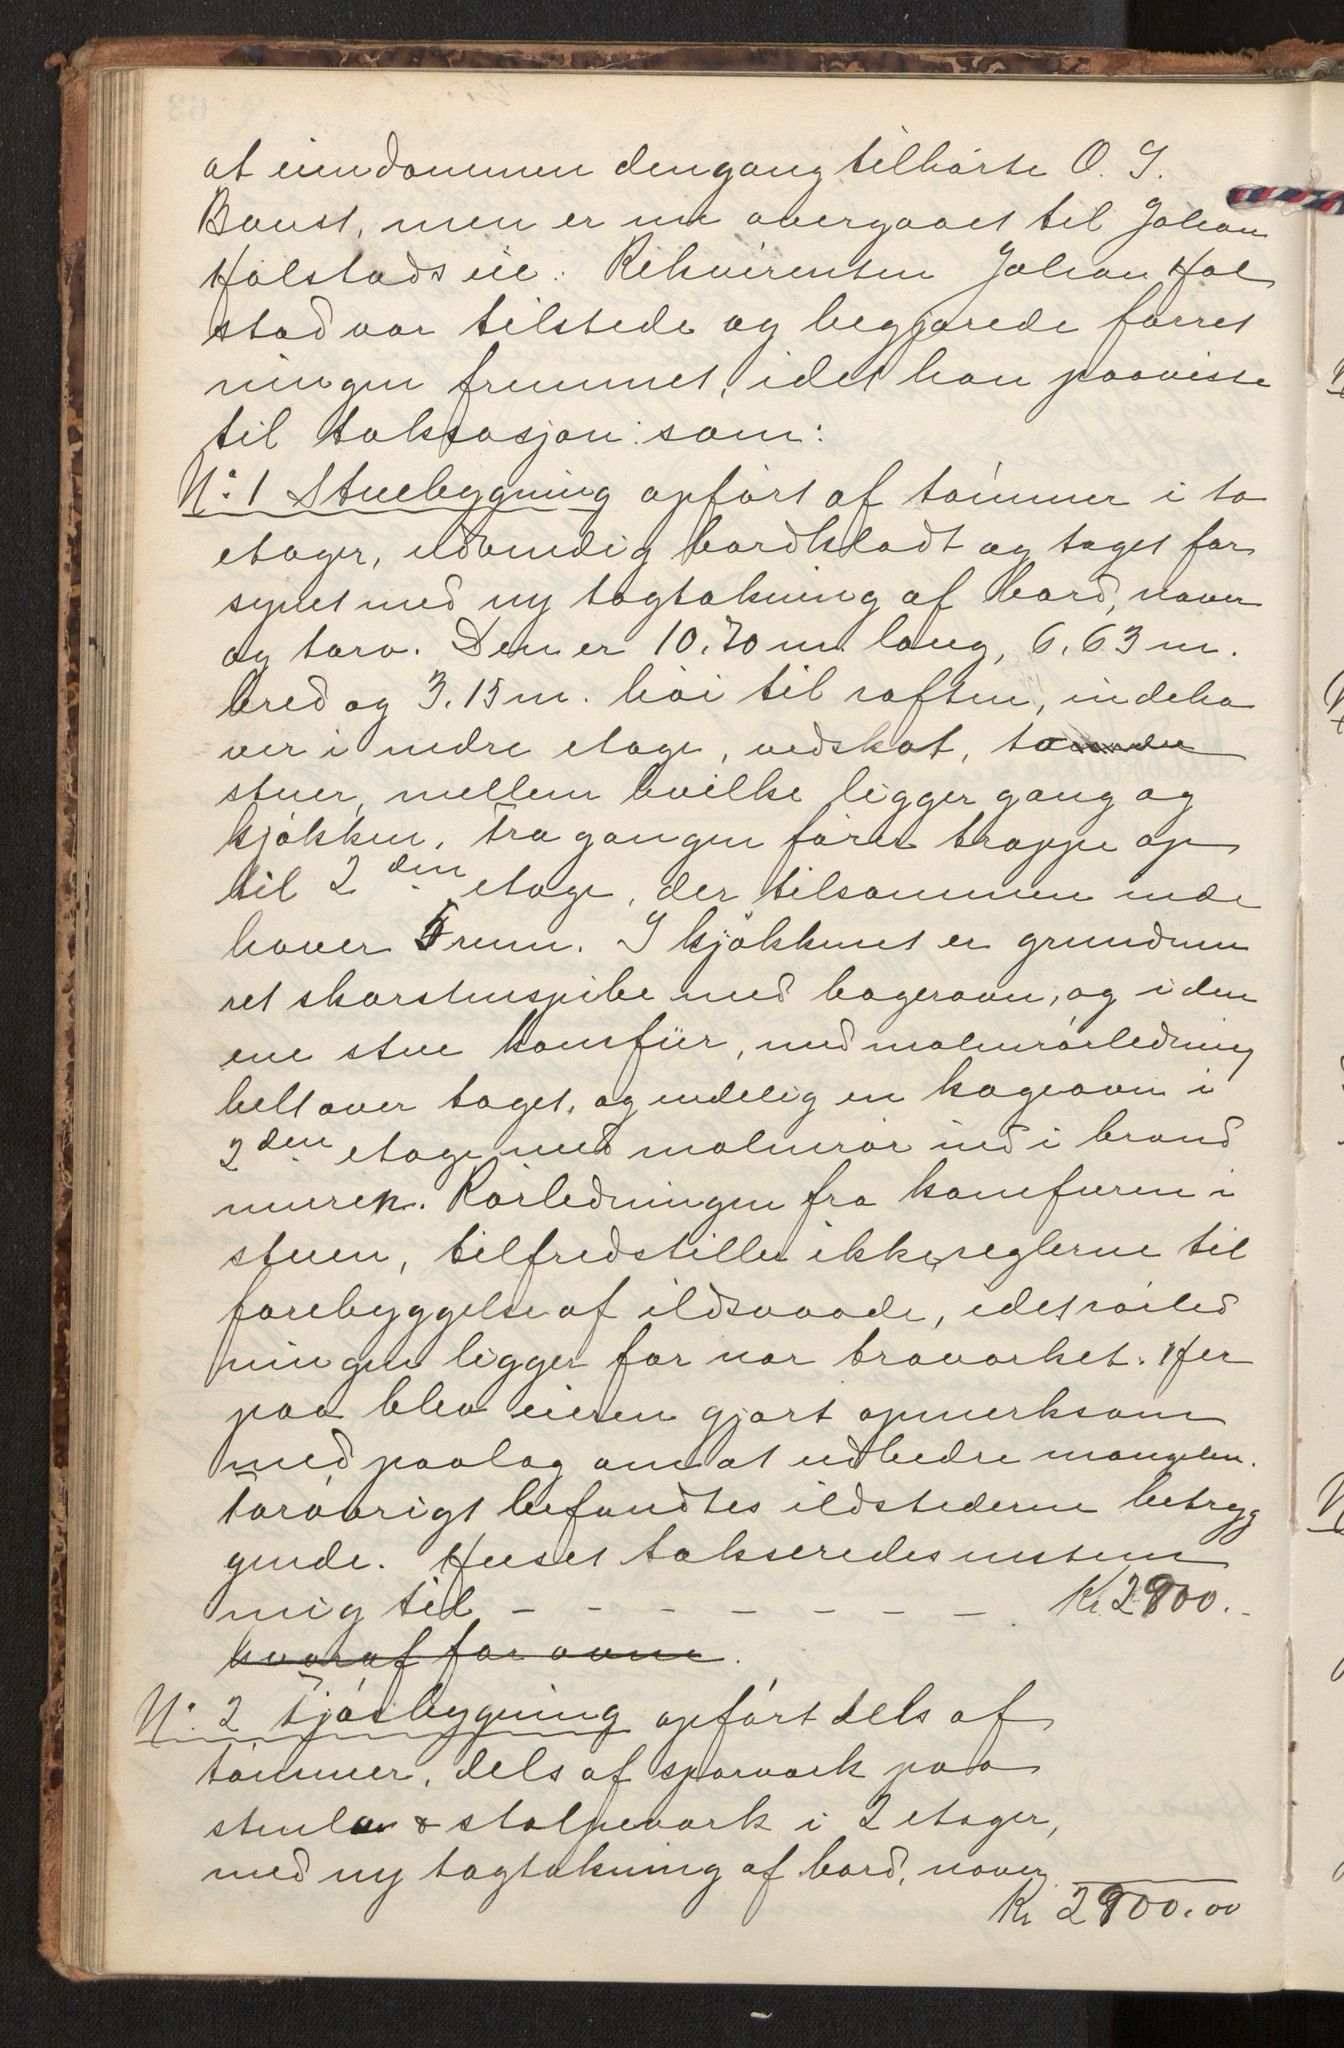 at eiendommen dengang tilhörte O. J.
Boust, men er nu overgaaet til Johan
Holstads eie. Rekvirenten Johan Hol
stad var tilstede og begjærede forret
ningen fremmet, idet han paaviste
til taksasjon som:
No. 1 Stuebygning opfört af tömmer i to
etager, udvendig bordklædt og taget for
synet med ny tagtækning af bord, never
og torv. Den er 10,70 m lang, 6,63 m.
bred og 3,15 m. höi til raften, indeha
ver i nedre etage, vedskot, to
stuer, mellem hvilke ligger gang og
kjökken. Fra gangen förer trappe op
til 2den etage, der tilsammen inde
haver 5 rum. I kjökkenet er grundmu
ret skorstenspibe med bageravn, og i den
ene stue komfür, med malmrörledning
helt over taget, og endelig en kogeovn i
2den etage med malmrör ind i brand
muren. Rörledningen fra komfuren i
stuen, tilfredstiller ikke reglerne til
forebyggelse af ildsvaade, idet rörled
ningen ligger for nær træværket. Her
paa blev eieren gjort opmerksom
med paalæg om at udbedre mangelen.
Forövrigt befandtes ildstederne betryg
gende. Huset takseredes enstem
mig til - - - - - - - - Kr. 2900.-
hvoraf for ovne.
No. 2 Fjösbygning opfört dels af
tömmer, dels af sparværk paa
stenler & stolpeværk i 2 etager,
med ny tagtækning af bord, never
Kr 2900.00